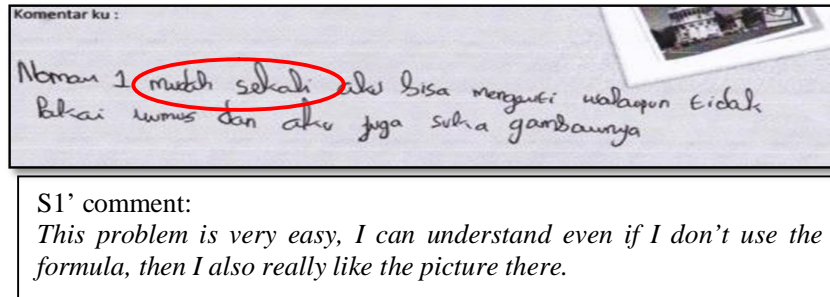 Komentar ku :
Nomor 1 mudah sekali aku bisa mengerti walaupun tidak
Pakai rumus dan aku juga suka gambarnya
S1’ comment:
This problem is very easy, I can understand even if I don’t use the
formula, then I also really like the picture there.